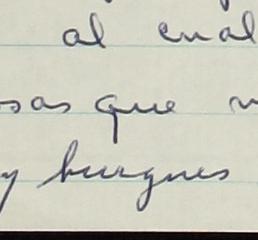 al cual
sas que
y burgues